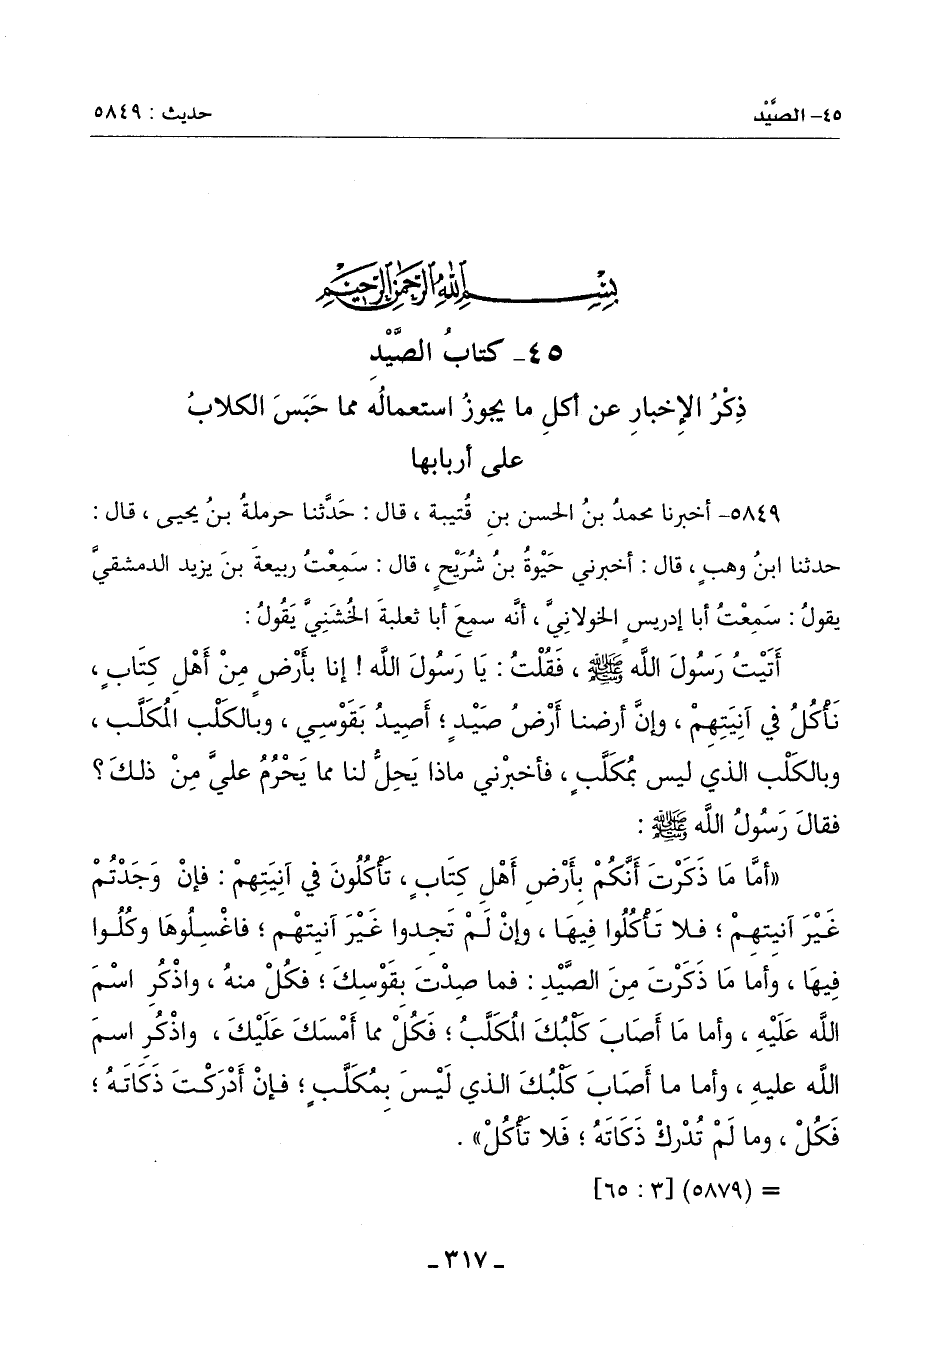 ٤٥- الصَّيْد
حديث : ٥٨٤٩
بِسْمِ اللهِ الرَّحْمَنِ الرَّحِيمِ
٤٥- كتابُ الصَّيْدِ
ذِكْرُ الإخبارِ عن أكلِ ما يجوزُ استعمالُه مما حَبَسَ الكلابُ
على أربابها
٥٨٤٩- أخبرنا محمدُ بنُ الحسن بنِ قُتيبة ، قال : حَدَّثنا حرملةُ بنُ يحيى ، قال :
حدثنا ابنُ وهبٍ ، قال : أخبرني حَيْوةُ بنُ شُرَيْحٍ ، قال : سَمِعْتُ ربيعةَ بنَ يزيد الدمشقيَّ
يقولُ : سَمِعْتُ أبا إدريسٍ الخولانِيَّ ، أنَّه سمعَ أبا ثعلبةَ الخُشَنِيَّ يَقُولُ :
أَتَيْتُ رَسُولَ اللَّه ﷺ ، فَقُلْتُ : يَا رَسُولَ اللَّه ! إنا بأَرْضٍ مِنْ أَهْلِ كِتَابٍ ،
نَأْكُلُ في آنِيَتِهِمْ ، وإنَّ أرضنا أَرْضُ صَيْدٍ ؛ أَصِيدُ بَقَوْسِي ، وبالكَلْبِ المُكَلَّبِ ،
وبالكَلْبِ الذي ليس بمُكَلَّبٍ ، فأخبرْني ماذا يَحِلُّ لنا مما يَحْرُمُ عليَّ مِنْ ذلكَ ؟
فقالَ رَسُولُ اللَّه ﷺ :
«أمَّا مَا ذَكَرْتَ أَنَّكُمْ بِأَرْضِ أَهْلِ كِتَابٍ ، تَأْكُلُونَ في آنِيَتِهِمْ : فإنْ وَجَدْتُمْ
غَيْرَ آنيتهِمْ ؛ فلا تَأْكُلُوا فِيهَا ، وإنْ لَمْ تجدوا غَيْرَ آنيتهْم ؛ فاغْسِلُوهَا وكُلُوا
فِيهَا ، وأما مَا ذَكَرْتَ مِنَ الصَّيْدِ : فما صِدْتَ بِقَوْسِكَ ؛ فَكُلْ منهُ ، واذْكُرِ اسْمَ
اللَّه عَلَيْهِ ، وأما مَا أَصَابَ كَلْبُكَ المُكَلَّبُ ؛ فَكُلْ مما أَمْسَكَ عَلَيْكَ ، واذْكُرِ اسمَ
اللَّه عليهِ ، وأما ما أَصَابَ كَلْبُكَ الذي لَيْسَ بِمُكَلَّبٍ ؛ فإنْ أَدْرَكْتَ ذَكَاتَهُ ؛
فَكُلْ ، وما لَمْ تُدْرِكْ ذَكَاتَهُ ؛ فَلا تَأْكُلْ» .
= (٥٨٧٩) [٣ : ٦٥]
- ٣١٧ -